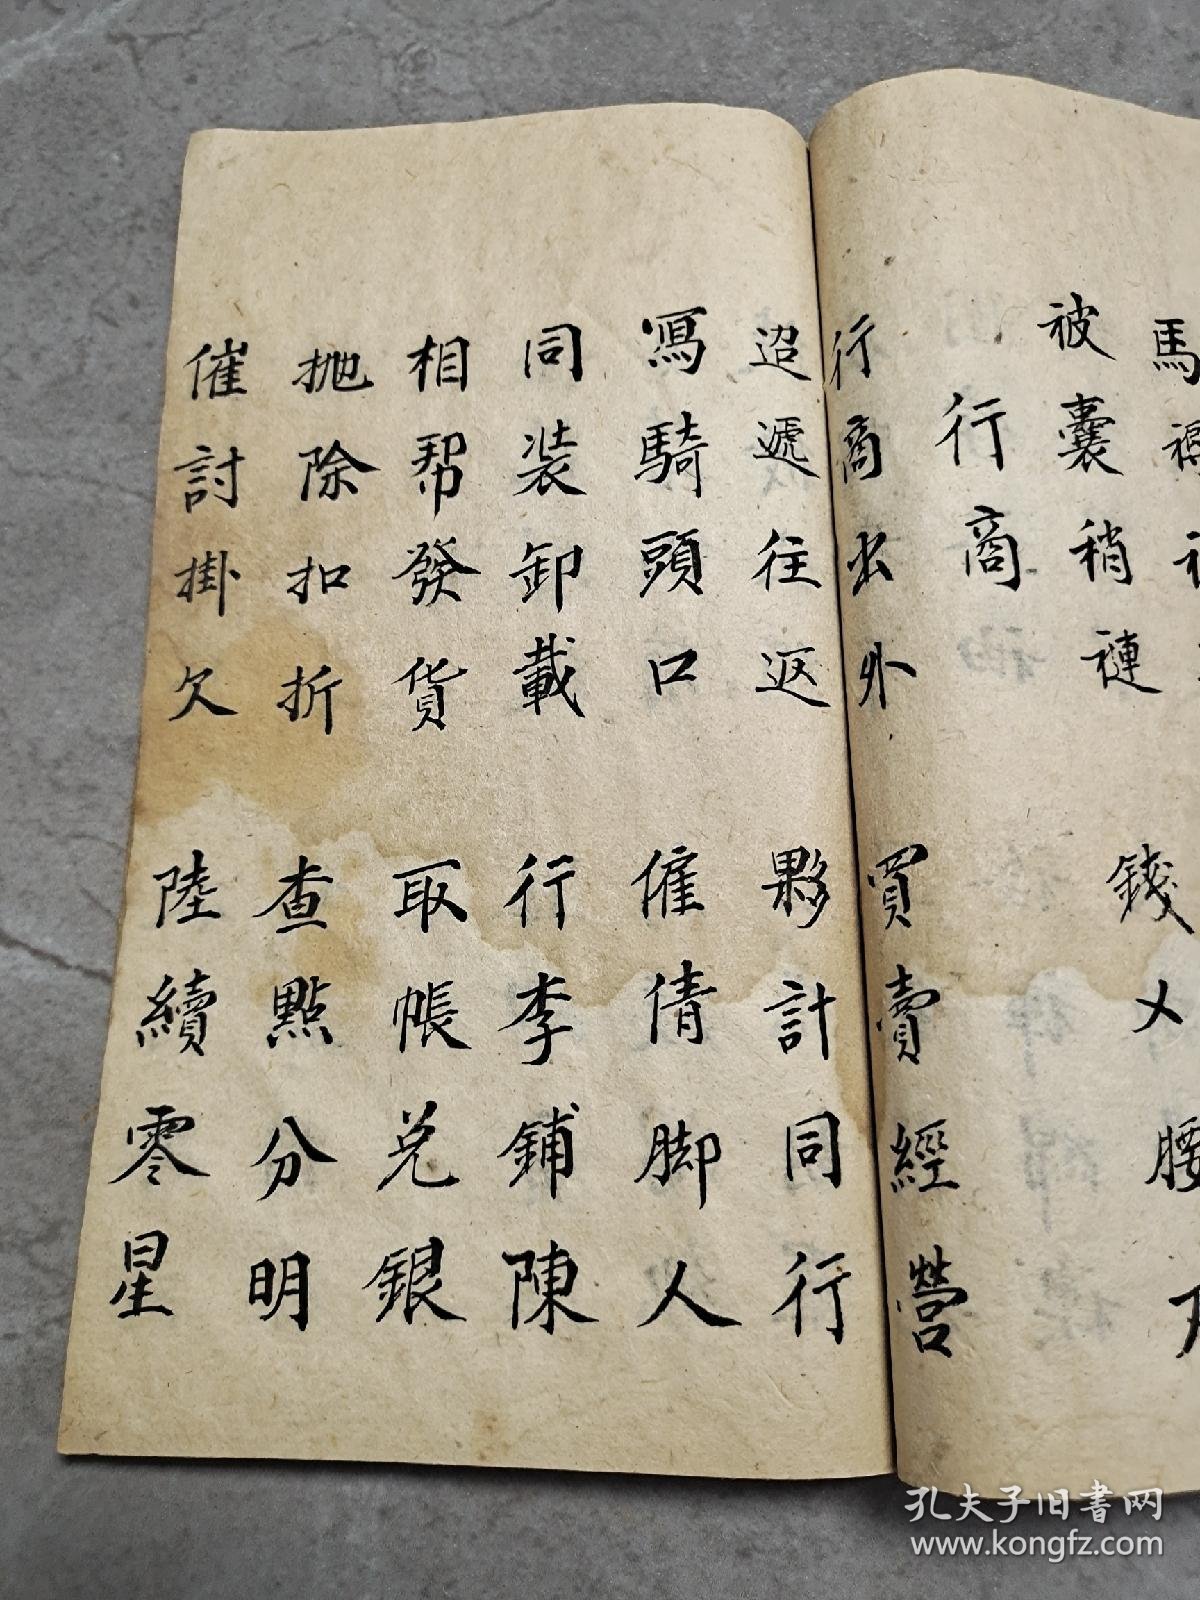 馬
被囊稍褳 錢乂腰
行商
行商出外 買賣經營
迢遞往返 夥計同行
寫騎頭口 僱倩脚人
同裝卸載 行李鋪陳
相帮發貨 取帳兑銀
抛除扣折 查點分明
催討掛欠 陸續零星
孔夫子旧書网
www.kongfz.com